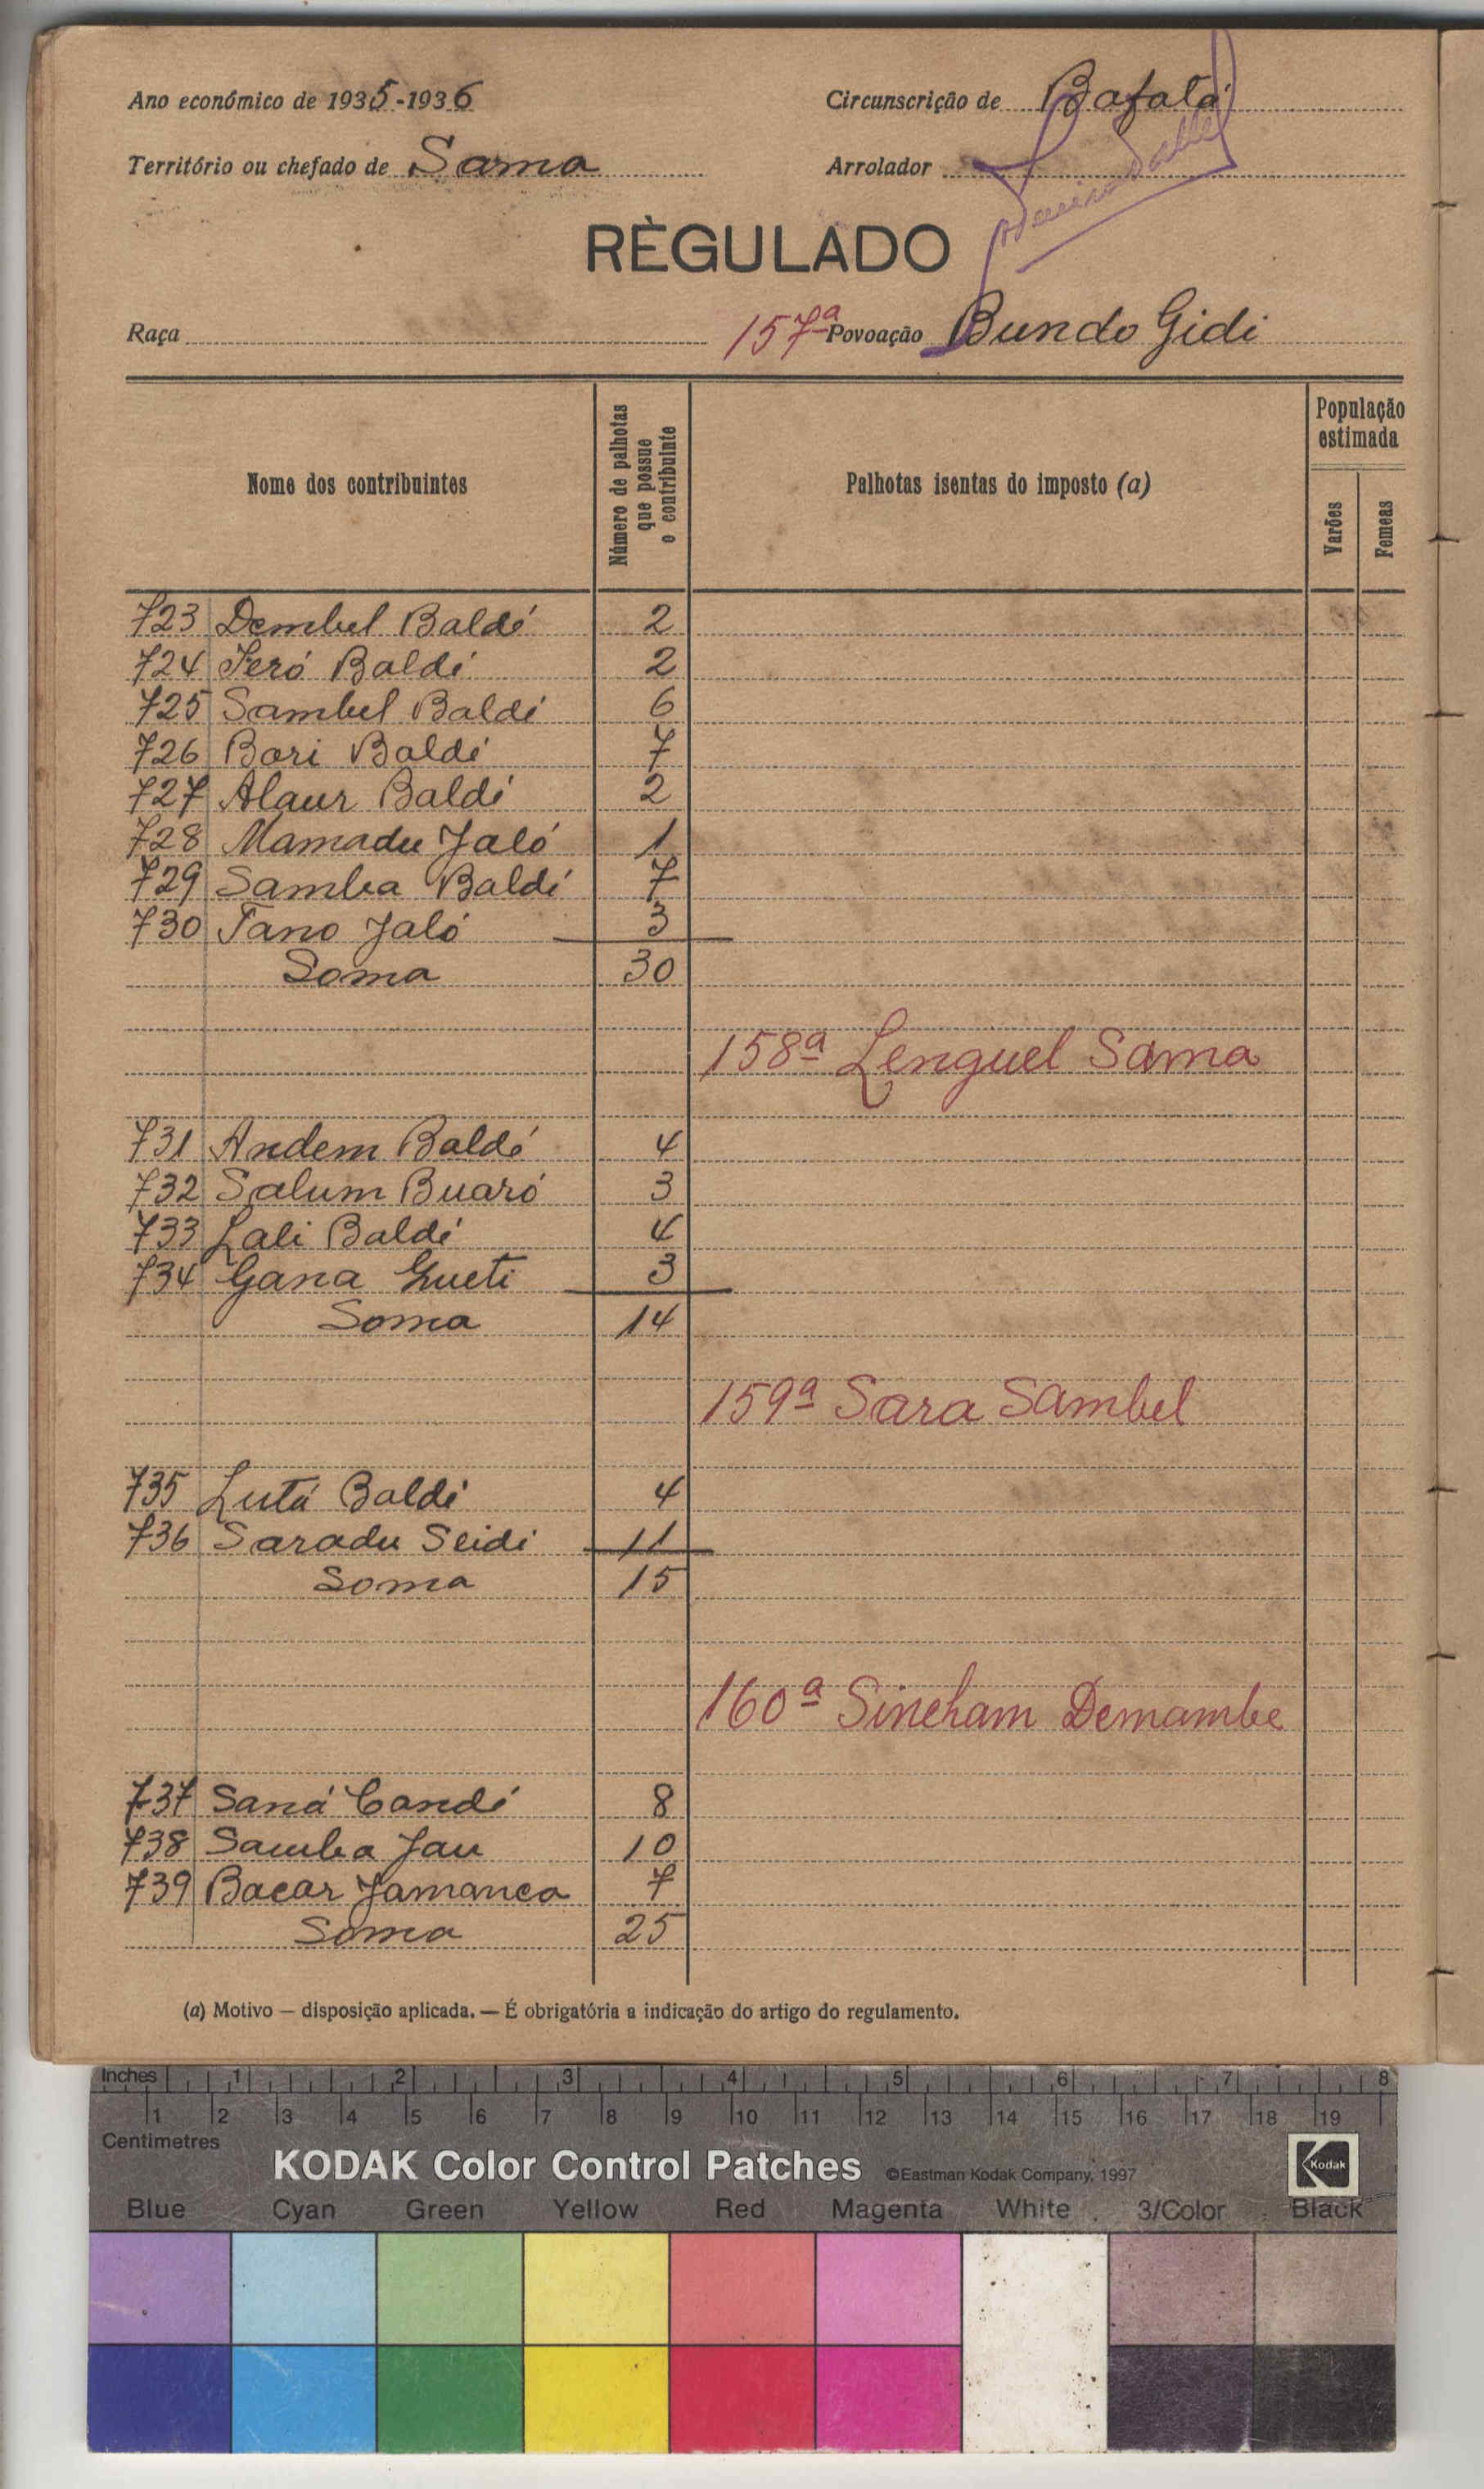 Ano económico de 1935-1936
Circunscrição de Bafatá
Território ou chefado de Sama
Arrolador
RÈGULADO
Raça
157ª Povoação Bundo Gidi
Nome dos contribuintes
Número de palhotas que possue o contribuinte
Palhotas isentas do imposto (a)
População estimada
Varões
Femeas
723 Dembel Baldé 2
724 Feró Baldé 2
725 Sambel Baldé 6
726 Bori Baldé 7
727 Alaur Baldé 2
728 Mamadu Jaló 1
729 Samba Baldé 7
730 Tano Jaló 3
Soma 30
158ª Lenguel Sama
731 Andem Baldé 4
732 Salum Buaró 3
733 Lali Baldé 4
734 Gana Gueti 3
Soma 14
159ª Sara Sambel
735 Lutá Baldé 4
736 Saradu Seidi 11
Soma 15
160ª Sincham Demambe
737 Saná Candé 8
738 Samba Jau 10
739 Bacar Jamanca 7
Soma 25
(a) Motivo — disposição aplicada. — É obrigatória a indicação do artigo do regulamento.
Inches 1 2 3 4 5 6 7 8
1 2 3 4 5 6 7 8 9 10 11 12 13 14 15 16 17 18 19
Centimetres
KODAK Color Control Patches ©Eastman Kodak Company, 1997 Kodak
Blue Cyan Green Yellow Red Magenta White 3/Color Black